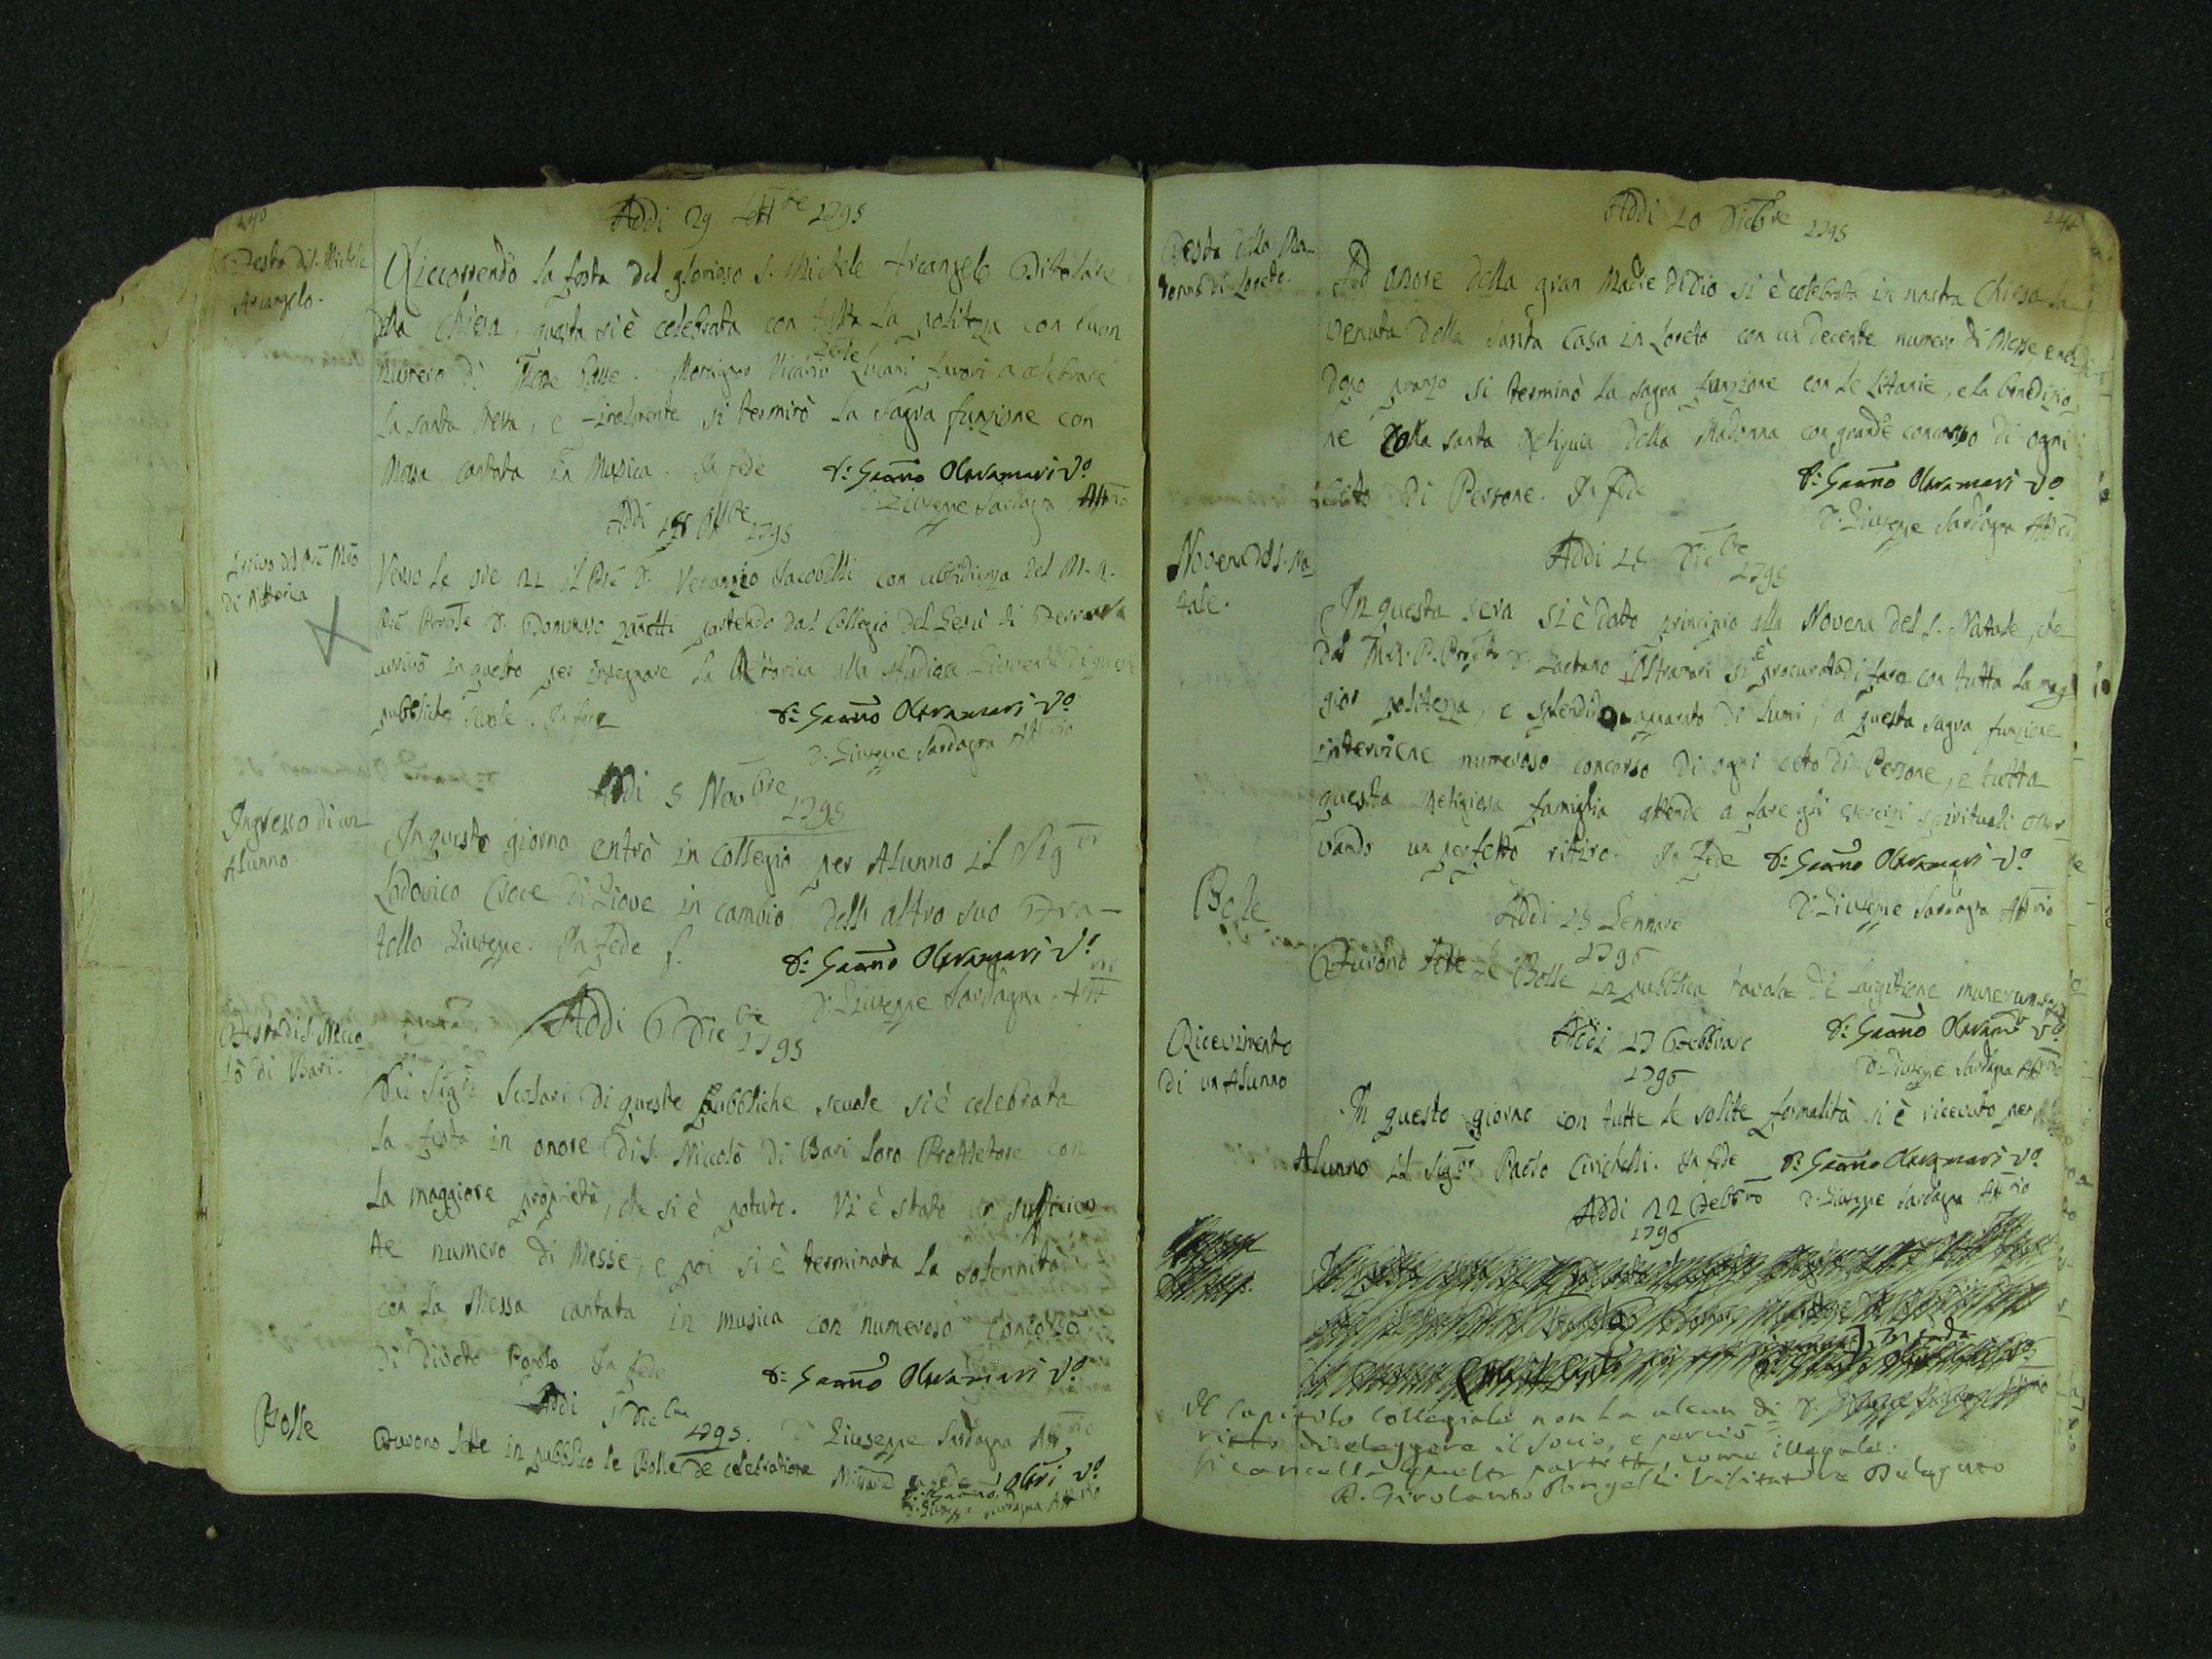 240
Addi 29 Settbre 1795
Festa di S. Michele
Arcangelo.
Riccorrendo la festa del glorioso S. Michele Arcangelo Titolare
della Chiesa questa si è celebrata con tutta la politezza con buon
numero di Messe basse. Monsignor Vicario Gnle Luciani favorì a celebrare
la santa Messa, e finalmente si terminò la sagra funzione con
Messa cantata in Musica. In fede D: Gaetno Oltramari Vo
D. Giuseppe Sardagna Attrio
Addi 18 Ottbre 1795
Arrivo del Pre Mro
di Rettorica
Verso le ore 21 il Pre D. Venanzio Jacobelli con ubbidienza del M. R.
Pre Provle D. Dommaso Zanetti partendo dal Collegio del Gesù di Ferrara
arrivò in questo per insegnare la Rettorica alla studiosa Gioventù di queste
pubbliche scuole. In fede D: Gaetno Oltramari Vo
D. Giuseppe Sardagna Attrio
Addi 5 Novbre 1795
Ingresso di un
Alunno.
In questo giorno entrò in Collegio per Alunno il Sigor
Lodovico Croce di Giove in cambio dell' altro suo Fra-
tello Giuseppe. In Fede D: Gaetno Oltramari Vo
D. Giuseppe Sardagna Attrio
Addi 6 Dicbre 1795
Festa di S. Nicco-
lò di Bari.
Dai Sigri Scolari di queste pubbliche scuole si è celebrata
la festa in onore di S. Niccolò di Bari loro Prottetore con
la maggiore proprietà, che si è potuto. Vi è stato un sufficien-
te numero di Messe, e poi si è terminata la solennità
con la Messa cantata in musica con numeroso concorso
di divoto Popolo. In fede D: Gaetno Oltramari Vo
Addi Dicbre 1795. D. Giuseppe Sardagna Attrio
Bolle
Furono lette in pubblico le Bolle de celebratione Missarum In fede D: Gaetno Oltri Vo
D. Giuseppe Sardagna Attrio
241
Addi 10 Dicbre 1795
Festa della Ma-
donna di Loreto.
Ad onore della gran Madre di Dio si è celebrata in nostra Chiesa la
venuta della Santa Casa in Loreto con un decente numero di Messe e nel
dopo pranzo si terminò la sagra funzione con le Litanie, e la benedizio-
ne colla santa Reliquia della Madonna con grande concorso di ogni
ceto di Persone. In fede D: Gaetno Oltramari Vo
D. Giuseppe Sardagna Attrio
Addi 15 Dicbre 1795
Novena del S. Na-
tale.
In questa sera si è dato principio alla Novena del S. Natale, che
dal M. R. P. Propto D. Gaetano Oltramari si è procurato di fare con tutta la mag-
gior politezza, e splendido apparato di lumi; a questa sagra funzione
interviene numeroso concorso di ogni ceto di Persone, e tutta
questa Religiosa famiglia attende a fare gli esercizi spirituali osser-
vando un perfetto ritiro. In Fede D: Gaetno Oltramari Vo
D. Giuseppe Sardagna Attrio
Addi 15 Gennaro 1796
Bolle
Furono lette le Bolle in pubblica tavola De Largitione munerum
D: Gaetno Oltramri Vo
D. Giuseppe Sardagna Attrio
Addi 17 Febbraro 1796
Ricevimento
di un Alunno
In questo giorno con tutte le solite formalità si è ricevuto per
Alunno il Sigor Paolo Cirichelli. In fede D: Gaetno Oltramari Vo
D. Giuseppe Sardagna Attrio
Addi 22 Febbro 1796
Il Capitolo Collegiale non ha alcun di-
ritto di eleggere il Socio, e perciò
si cancella questo partito, come illegale.
D. Girolamo Pongelli Visitatore Delegato